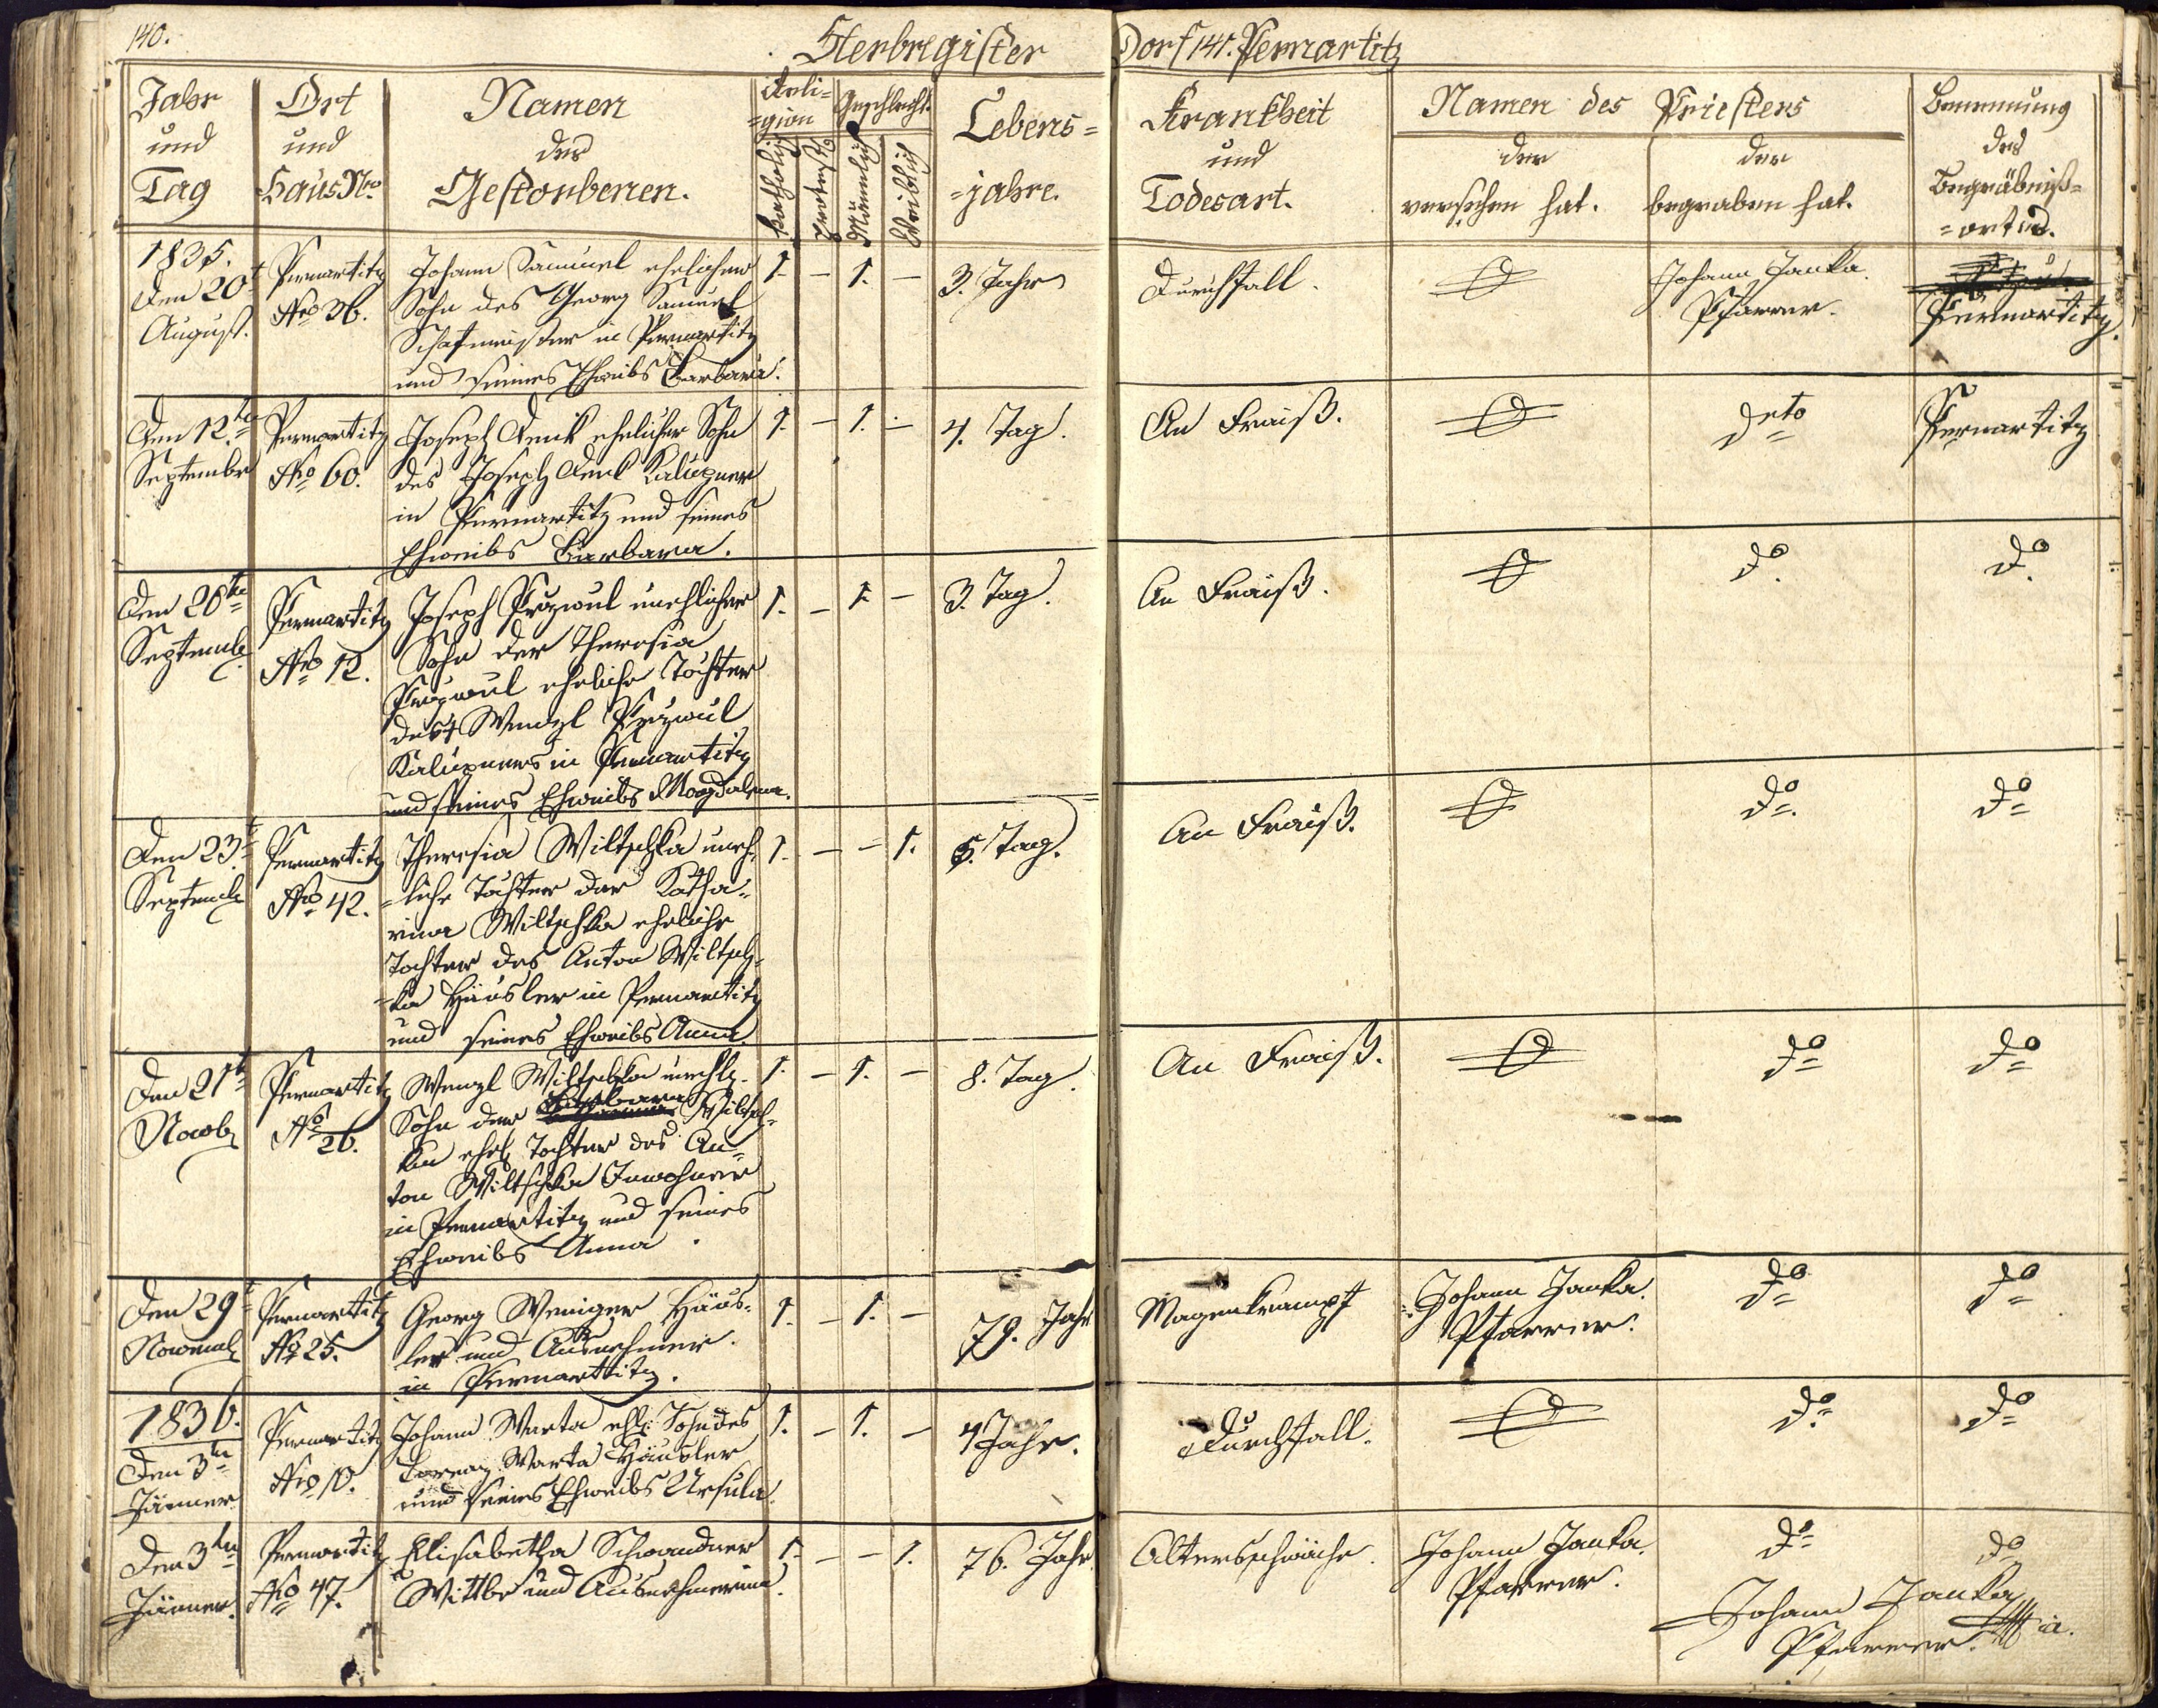 140.
Sterbregister
Dorf 141. Permartitz
Jahr
und
Tag
Ort
und
Haus Nro
Namen
des
Gestorbenen.
Reli-
=gion
Katholisch
Protest.
Geschlecht
Männlich
Weiblich
Lebens=
=jahre.
Krankheit
und
Todesart.
Namen des Priesters
der
versehen hat.
der
begraben hat.
Benennung
des
Begräbniß=
=ortes.
1835.
Den 20t
August.
Permartitz
Nro 36.
Johann Samuel ehelicher
Sohn des Georg Samuel
Schafmeister in Permartitz
und seines Eheweibs Barbara.
1. – 1. –
3. Jahr
Durchfall.
Johann Janka
Pfarrer.
Permartitz.
Den 12ten
September
Permartitz
Nro 60.
Joseph Denk ehelicher Sohn
des Joseph Denk Kalupner
in Permartitz und seines
Eheweibs Barbara.
1. – 1. –
4. Tag.
An Fraiß.
deto
Permartitz
Den 20ten
Septemb
Permartitz
Nro 12.
Joseph unehlicher
Sohn der Theresia
eheliche Tochter
des † Wenzl
Kalupners in Permartitz
und seines Eheweibs Magdalena.
1. – 1. –
3. Tag.
An Fraiß.
do
do
Den 23t
Septemb
Permartitz
Nro 42.
Theresia Wiltschka uneh=
=liche Tochter der Katha=
rina Wiltschka eheliche
Tochter des Anton Wiltsch=
=ka Häusler in Permartitz
und seines Eheweibs Anna
1. – – 1.
5. Tag.
An Fraiß.
do
do
Den 21t
Novb
Permartitz
No 26.
Wenzl Wiltschka unehl.
Sohn der Barbara Wiltsch=
ka ehel Tochter des An=
ton Wiltschka Inwohner
in Permartitz und seines
Eheweibs Anna.
1. – 1. –
8. Tag.
An Fraiß.
do
do
Den 29t
Novemb
Permartitz
No 25.
Georg Weniger Häus=
ler und Ausnehmer
in Permartitz.
1. – 1. –
79. Jahr
Magenkrampf
Johann Janka
Pfarrer.
do
do
1836.
Den 3ten
Jänner
Permartitz
Nro 10.
Johann Warta ehl. Sohn des
Lorenz Warta Häusler
und seines Eheweibs Ursula
1. – 1. –
4 Jahr.
Durchfall.
do
do
Den 3ten
Jänner.
Permartitz
Nro 47.
Elisabetha Schwandner
Wittbe und Ausnehmerinn.
1. – – 1.
76. Jahr
Altersschwäche.
Johann Janka
Pfarrer.
do
do
Johann Janka
Pfarrer.